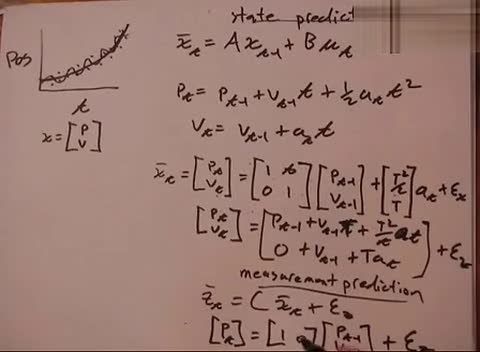 state predict
Pos
t
x = [P V]
x̄_t = A x_t-1 + B μ_t
P_t = P_t-1 + V_t-1 t + 1/2 a_t t²
V_t = V_t-1 + a_t t
x̄_t = [P_t V_t] = [1 t 0 1] [P_t-1 V_t-1] + [T²/2 T] a_t + ε_x
[P_t V_t] = [P_t-1 + V_t-1 T + T²/2 a_t
0 + V_t-1 + T a_t] + ε_x
measurement prediction
z̄_t = C x̄_t + ε_z
[P_t] = [1 ] [P_t-1 ] + ε_z